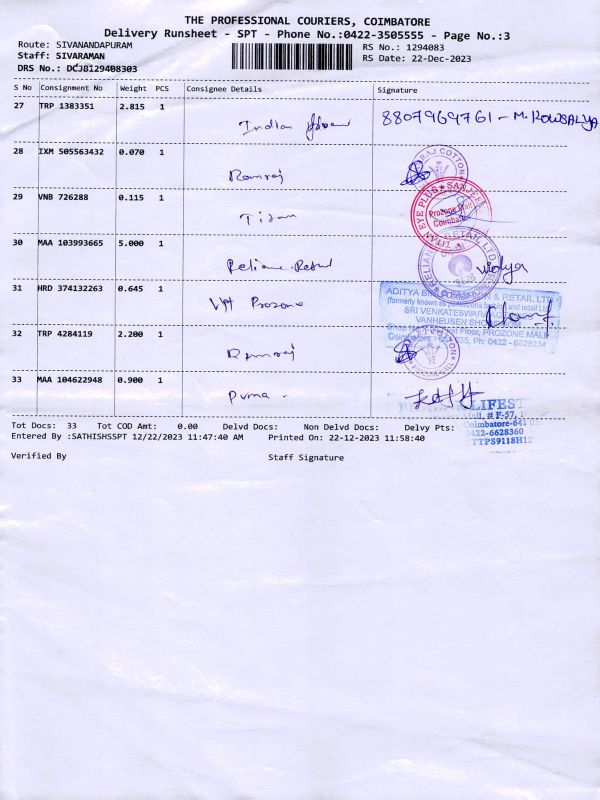 THE PROFESSIONAL COURIERS, COIMBATORE
Delivery Runsheet - SPT - Phone No.:0422-3505555 - Page No.:3
Route: SIVANANDAPURAM
RS No.: 1294083
Staff: SIVARAMAN
RS Date: 22-Dec-2023
DRS No.: DCJ8129408303
S No Consignment No Weight PCS Consignee Details Signature
27 TRP 1383351 2.815 1
Indian
8807969761 - M. KOWSALYA
28 IXM 505563432 0.070 1
Ramraj
RAJ COTTON
29 VNB 726288 0.115 1
Titan
TITAN EYE PLUS ★ SANJEER
Prozone Mall
Coimbatore
30 MAA 103993665 5.000 1
Reliance Retail
RETAIL LTD
vidya
31 HRD 374132263 0.645 1
VH Prozone
& RETAIL LTD
(formerly known as
SRI VENKATESWARA
VANHEUSEN SHO
Floor, PROZONE MALL
Ph: 0422 - 6628234
32 TRP 4284119 2.200 1
Ramraj
COTTON
33 MAA 104622948 0.900 1
Puma -
LIFEST
Mall, # F-57,
Coimbatore-641 035
0422-6628360
TTPS9118H1Z
Tot Docs: 33 Tot COD Amt: 0.00 Delvd Docs: Non Delvd Docs: Delvy Pts:
Entered By :SATHISHSSPT 12/22/2023 11:47:40 AM Printed On: 22-12-2023 11:58:40
Verified By Staff Signature